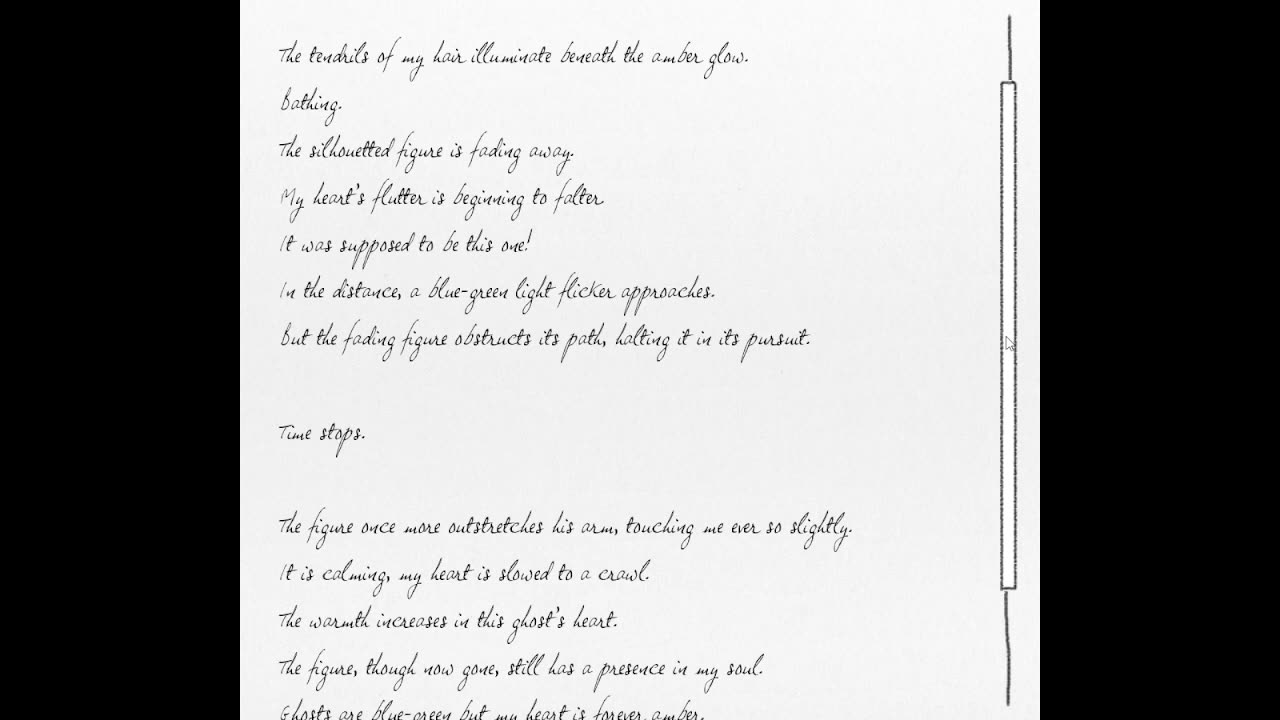 The tendrils of my hair illuminate beneath the amber glow.
Bathing.
The silhouetted figure is fading away.
My heart's flutter is beginning to falter
It was supposed to be this one!
In the distance, a blue-green light flicker approaches.
But the fading figure obstructs its path, halting it in its pursuit.
Time stops.
The figure once more outstretches his arm, touching me ever so slightly.
It is calming, my heart is slowed to a crawl.
The warmth increases in this ghost's heart.
The figure, though now gone, still has a presence in my soul.
Ghosts are blue-green but my heart is forever amber.